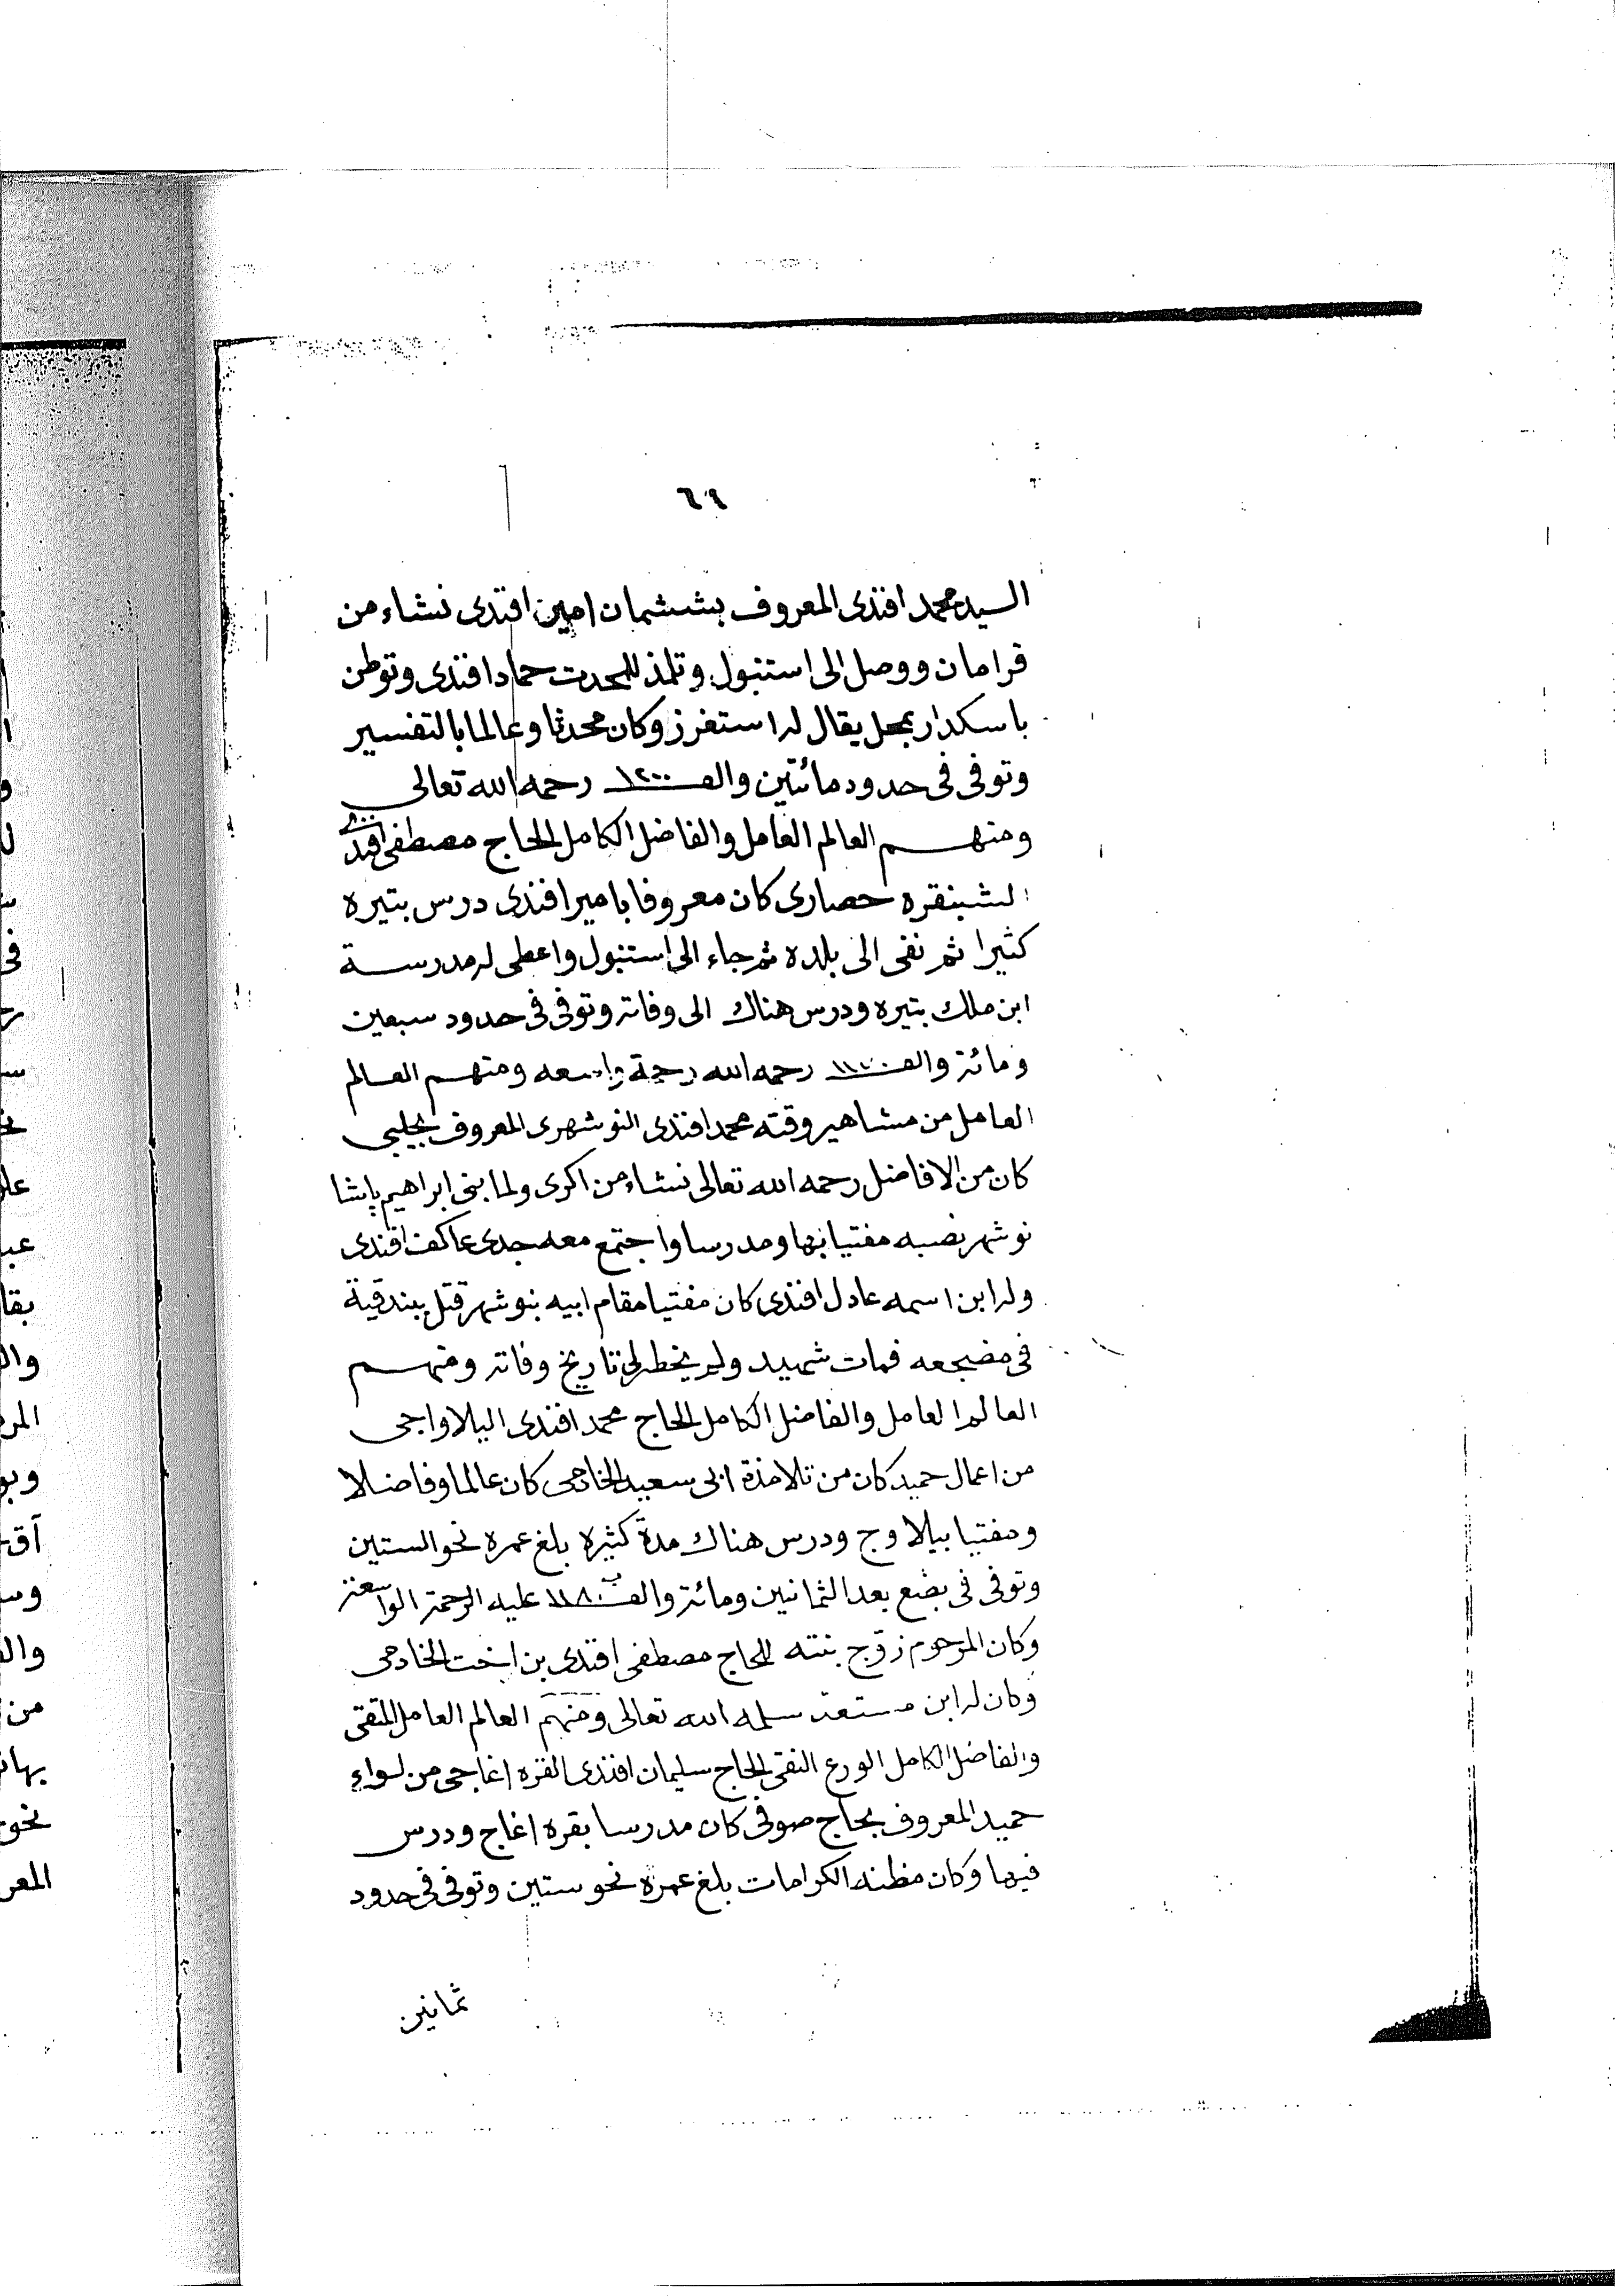 ٦٩
السيد محمد افندى المعروف بششمان امين افندى نشاء من
قرامان ووصل الى استنبول وتلمذ للمحدث حماد افندى وتوطن
باسكدار بمحل يقال له استفرز وكان محدثا وعالما بالتفسير
وتوفى فى حدود مائتين والف ١٢٠٠ رحمه الله تعالى
ومنهم العالم العامل والفاضل الكامل الحاج مصطفى افندى
الشبنقره حصارى كان معروفا بامير افندى درس بتيره
كثيرا ثم نفى الى بلده ثم جاء الى استنبول واعطى له مدرسة
ابن ملك بتيره ودرس هناك الى وفاته وتوفى فى حدود سبعين
ومائة والف ١١٧٠ رحمه الله رحمة واسعه ومنهم العالم
العامل من مشاهير وقته محمد افندى النوشهرى المعروف بجلبى
كان من الافاضل رحمه الله تعالى نشاء من اكرى ولما بنى ابراهيم پاشا
نوشهر نصبه مفتيا بها ومدرسا واجتمع معه جدى عاكف افندى
وله ابن اسمه عادل افندى كان مفتيا مقام ابيه بنوشهر قتل ببندقية
فى مضجعه فمات شهيد ولم يخطر لى تاريخ وفاته ومنهم
العالم العامل والفاضل الكامل الحاج محمد افندى اليلاواجى
من اعمال حميد كان من تلامذة ابى سعيد الخادمى كان عالما وفاضلا
ومفتيا بيالاوج ودرس هناك مدة كثيره بلغ عمره نحو الستين
وتوفى فى بضع بعد الثمانين ومائة والف ١١٨٠ عليه الرحمة الواسعة
وكان المرحوم زوج بنته للحاج مصطفى افندى بن اخت الخادمى
وكان له ابن مستعد سلمه الله تعالى ومنهم العالم العامل المتقى
والفاضل الكامل الورع النقى الحاج سليمان افندى القره اغاجى من لواء
حميد المعروف بحاج صوفى كان مدرسا بقره اغاج ودرس
فيها وكان مظنه الكرامات بلغ عمره نحو ستين وتوفى فى حدود
ثمانين